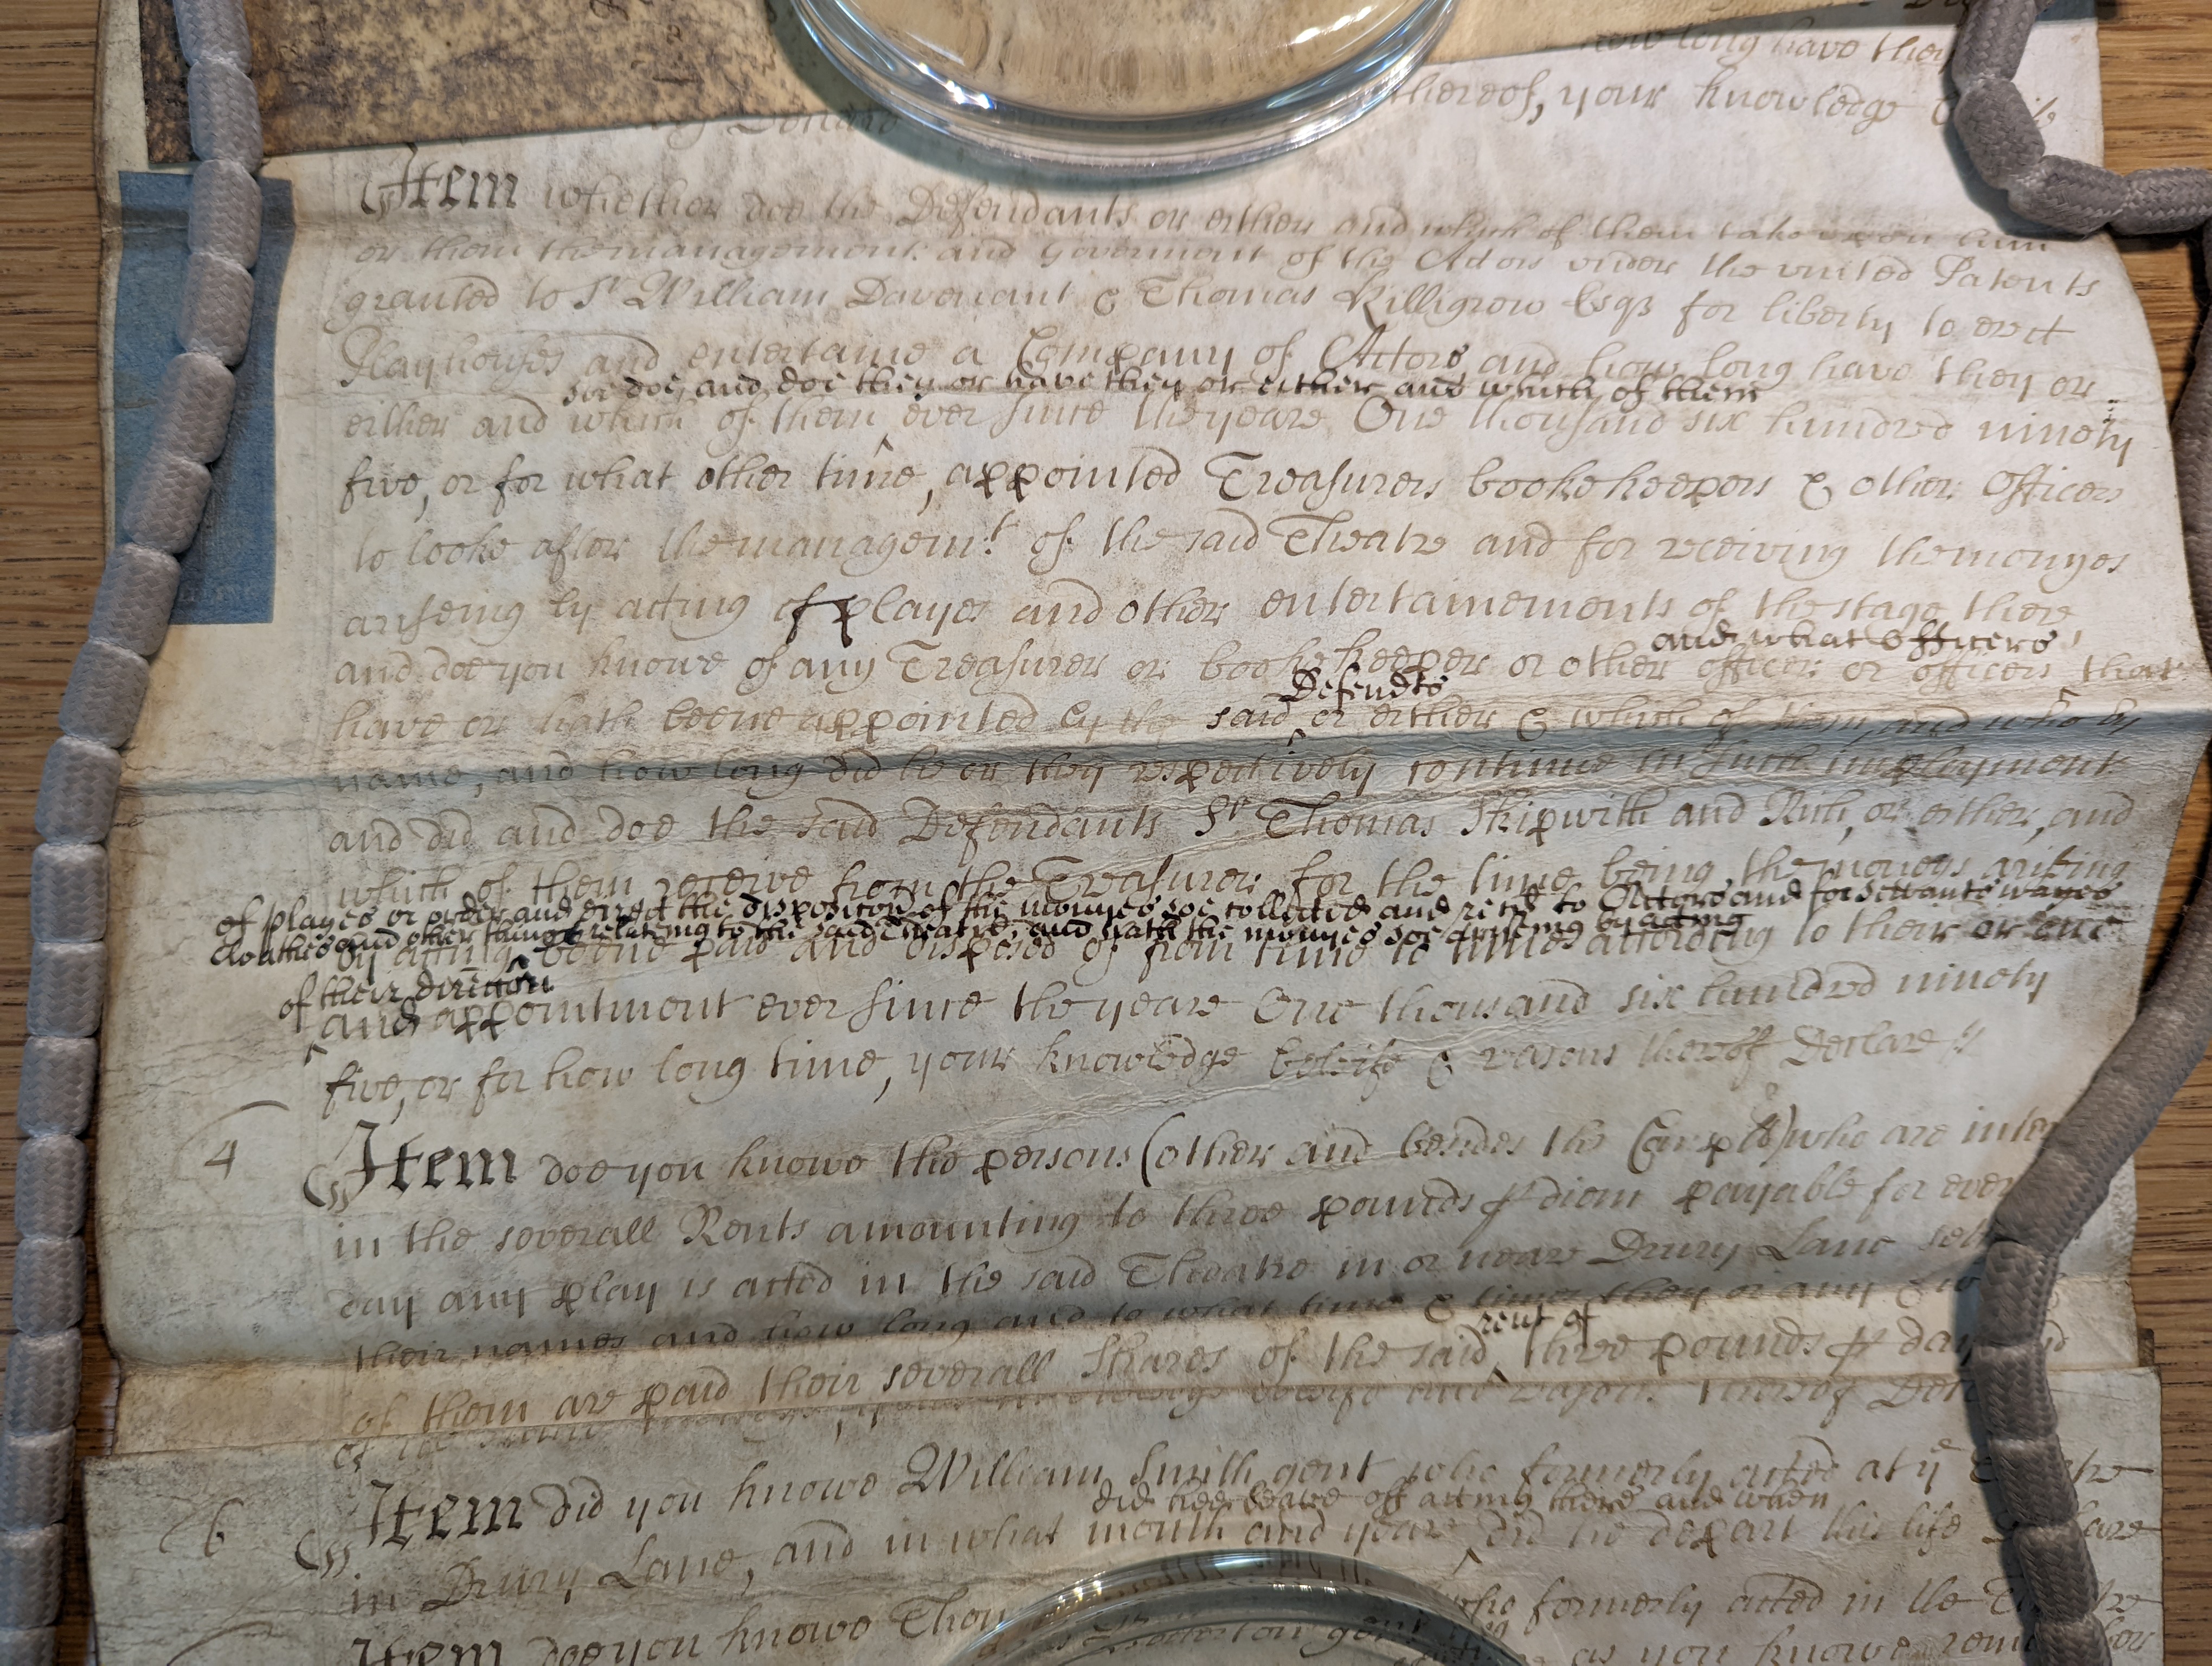 how long have they
thereof, your knowledge &
Item whether doe the Defendants or either and which of them take upon him
or them the management and Goverment of the Actors under the united Patents
granted to Sr William Davenant & Thomas Killigrew Esqrs for liberty to erect
Playhouses and entertaine a Company of Actors and how long have they or
soe doe, and doe they or have they or either and which of them
either and which of them ever since the yeare One thousand six hundred ninety
five, or for what other time, appointed Treasurers bookekeepers & other Officers
to looke after the managemt. of the said Theatre and for receiving the monyes
ariseing by acting of playes and other entertainements of the stage there
and what Officers
and doe you knowe of any Treasurer or bookekeeper or other officer or officers that
Defendts
have or hath beene appointed by the said or either & which of them, and who by
name, and how long did he or they respectively continue in such imployment
and did and doe the said Defendants Sr Thomas Skipwith and Rich, or either, and
which of them receive from the Treasurer for the time being the moneys arising
of playes or order and direct the disposicon of the monyes soe collected and recd to Actors and for servants wages
cloathes and other things relateing to the said Theatre, and hath the monyes soe ariseing by acting
by acting beene paid and disposed of from time to time according to their or one
of their direccon
and appointment ever since the yeare One thousand six hundred ninety
five, or for how long time, your knowledge beleife & reasons thereof Declare
4
Item doe you knowe the persons (other and besides the Complts) who are
in the severall Rents amounting to three pounds p diem payable for
day any play is acted in the said Theatre in or neare Drury Lane
their names and how long and to what time & times they or any &
rent of
of them are paid their severall Shares of the said three pounds p day
knowledge beleife and reasons thereof
6
Item did you knowe William Smith gent who formerly acted at ye
did hee leave off acting there and when
in Drury Lane, and in what month and yeare did he depart this life
Item doe you knowe who formerly acted in the
gent as you knowe